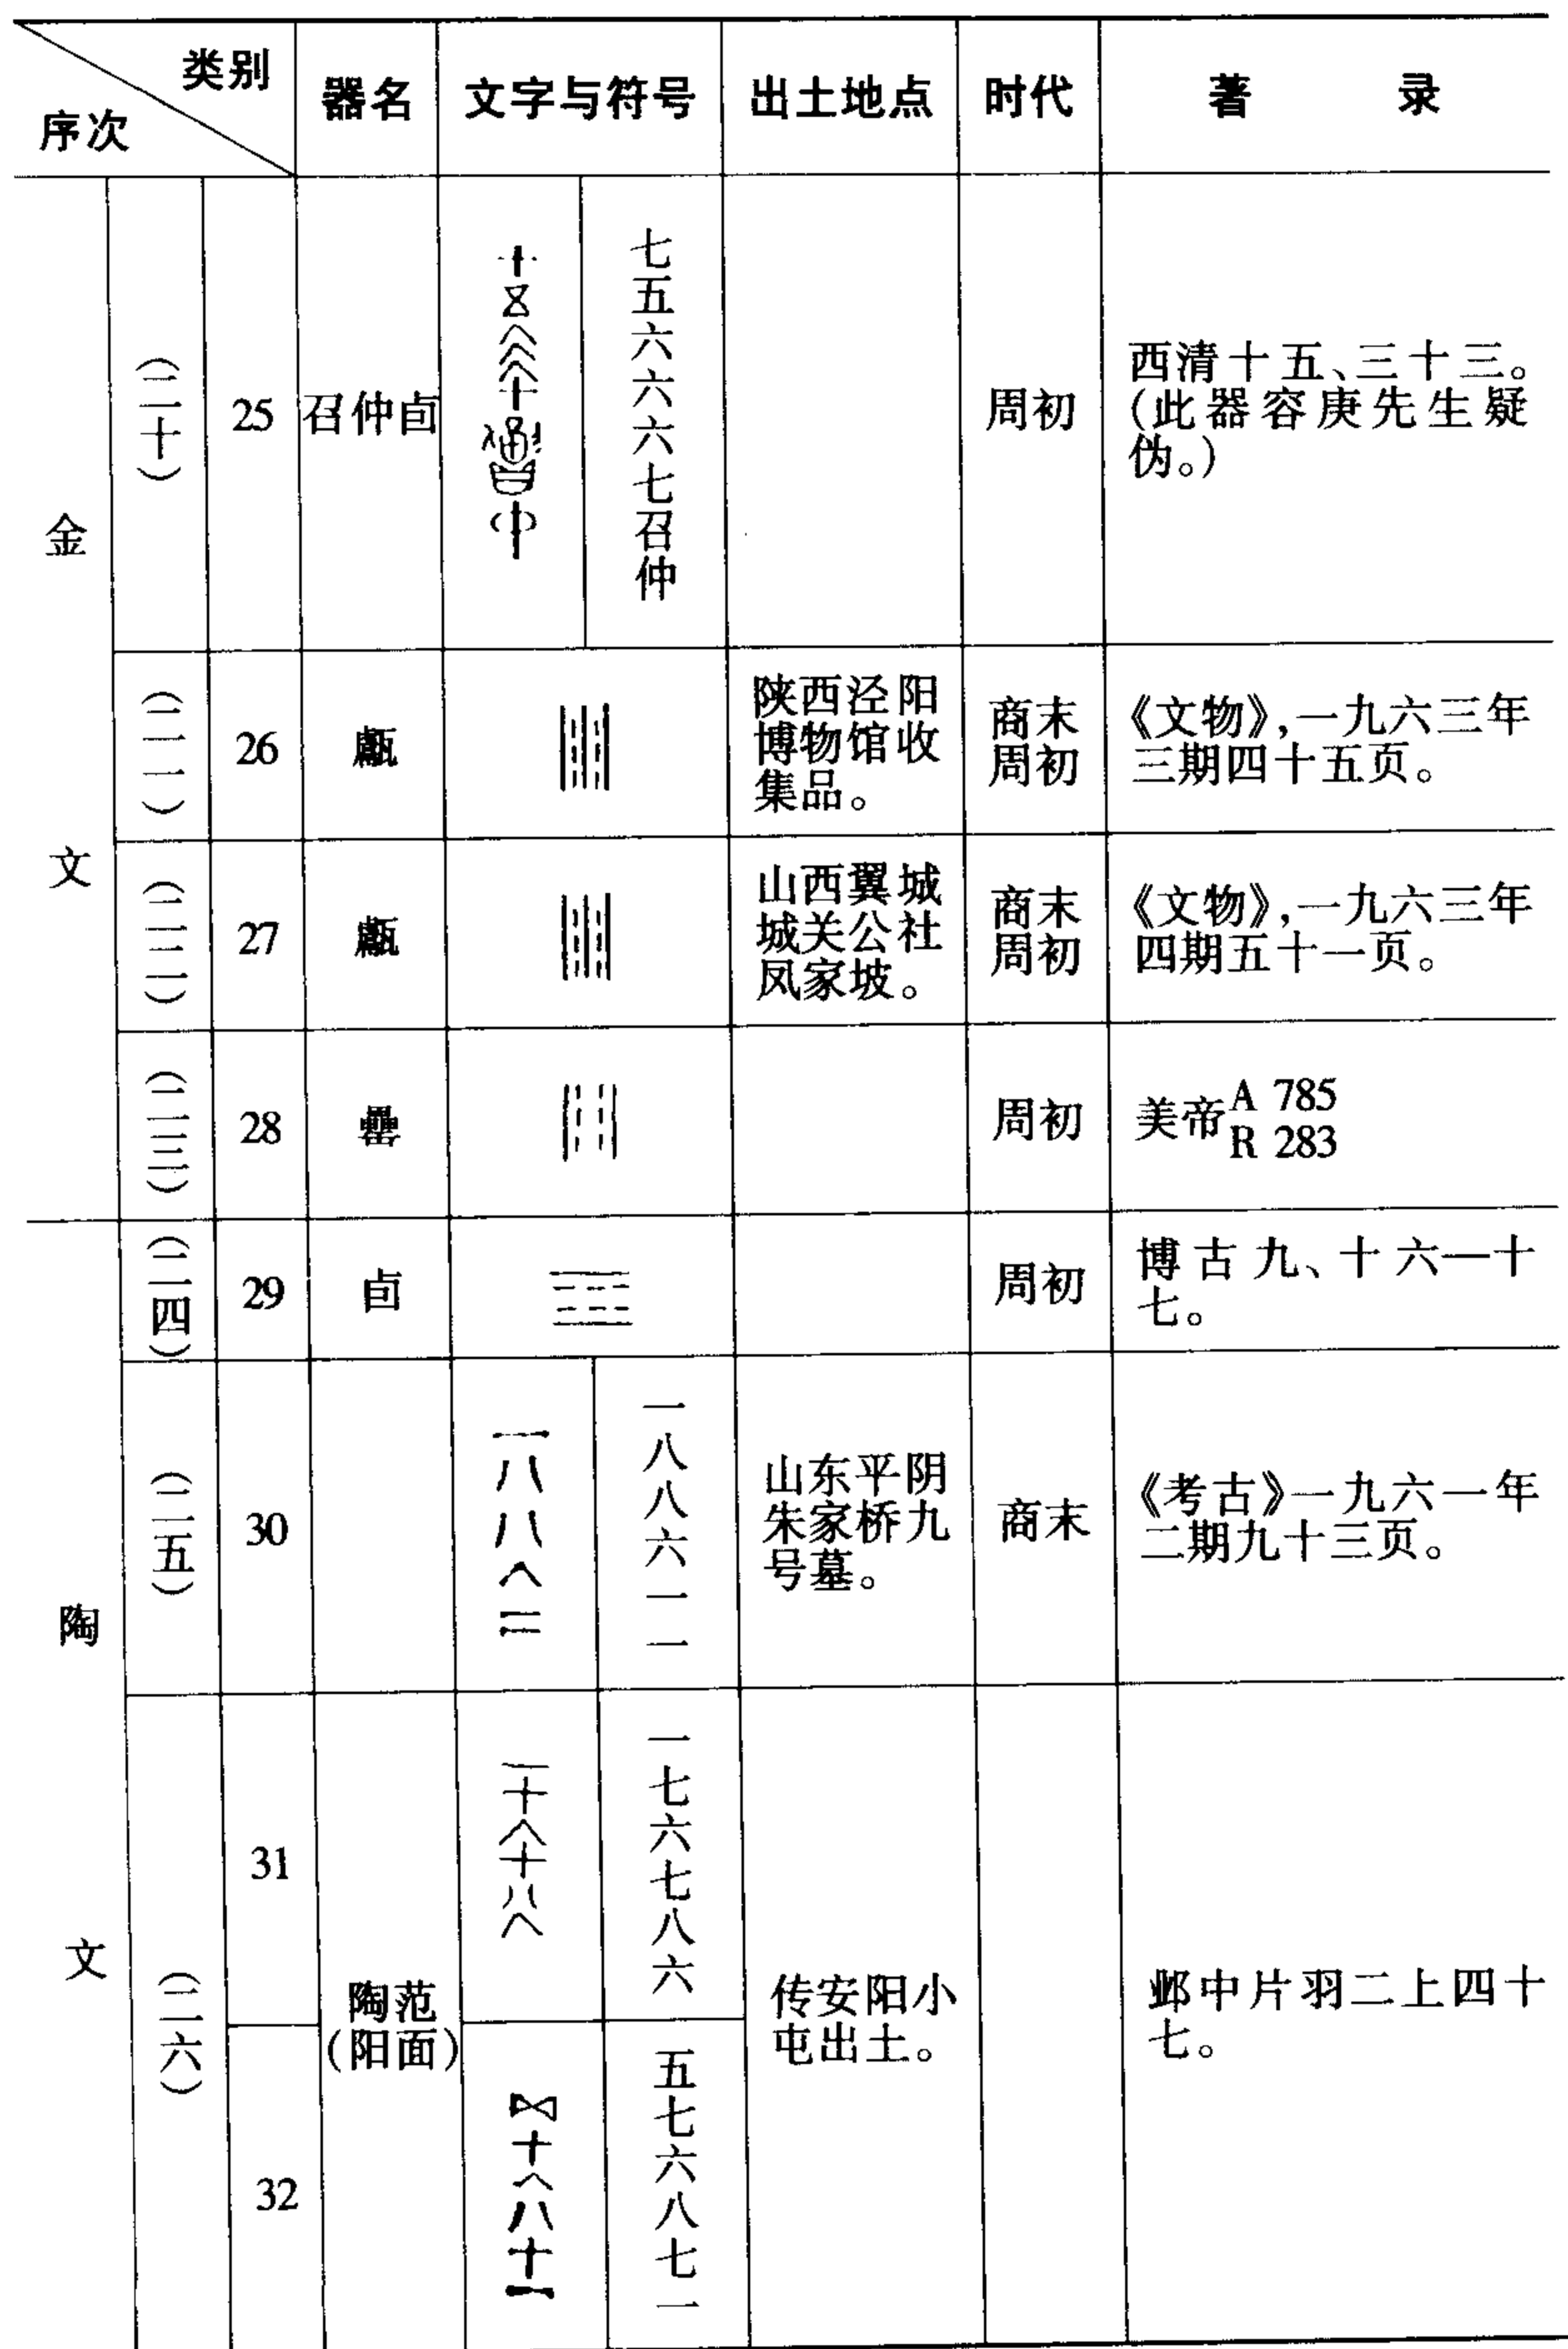 类别
序次
器名
文字与符号
出土地点
时代
著 录
金文
(二十)
25
召仲卣
七五六六六七召仲
周初
西清十五、三十三。
(此器容庚先生疑
伪。)
(二一)
26
甗
陕西泾阳
博物馆收
集品。
商末
周初
《文物》,一九六三年
三期四十五页。
(二二)
27
甗
山西翼城
城关公社
凤家坡。
商末
周初
《文物》,一九六三年
四期五十一页。
(二三)
28
罍
周初
美帝A 785
R 283
(二四)
29
卣
周初
博古九、十六—十
七。
陶文
(二五)
30
一八八六一一
山东平阴
朱家桥九
号墓。
商末
《考古》一九六一年
二期九十三页。
(二六)
31
陶范
(阳面)
一七六七八六
传安阳小
屯出土。
邺中片羽二上四十
七。
32
五七六八七一